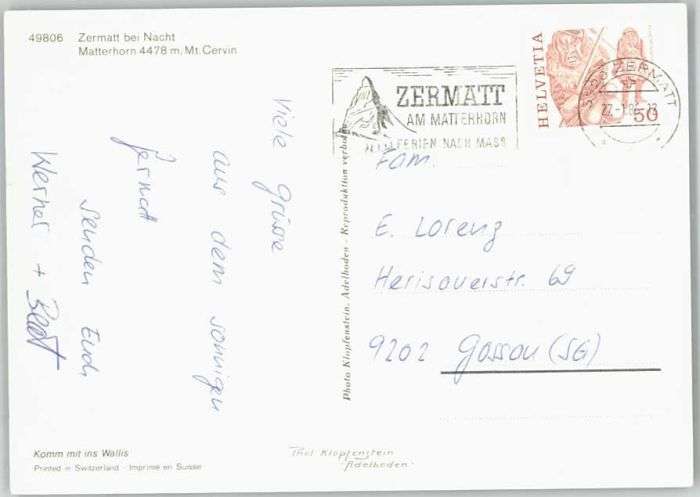 49806 Zermatt bei Nacht
Matterhorn 4478 m, Mt. Cervin
Viele Grüsse
aus dem sonnigen
Zermatt
senden Euch
Werner + Beat
Komm mit ins Wallis
Printed in Switzerland - Imprimé en Suisse
Photo Klopfenstein, Adelboden - Reproduktion verboten
Phot Klopfenstein
Adelboden
ZERMATT
AM MATTERHORN
FERIEN NACH MASS
HELVETIA
50
ZERMATT
Fam.
E. Lorenz
Herisauerstr. 69
9202 Gossau (SG)